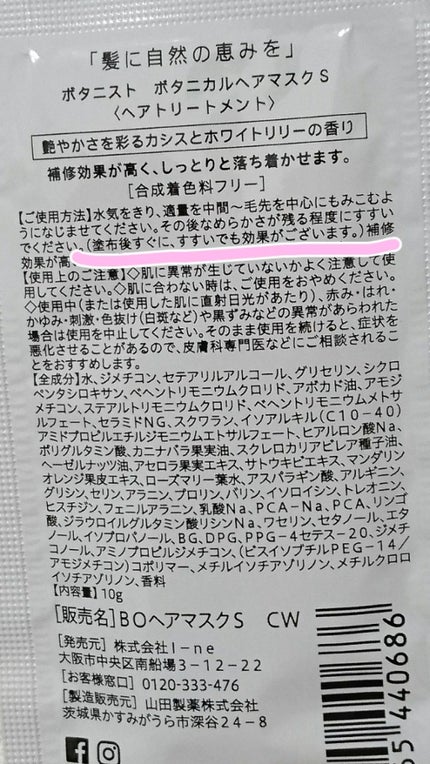 「髪に自然の恵みを」
ボタニスト ボタニカルヘアマスクS
〈ヘアトリートメント〉
艶やかさを彩るカシスとホワイトリリーの香り
補修効果が高く、しっとりと落ち着かせます。
[合成着色料フリー]
【ご使用方法】水気をきり、適量を中間〜毛先を中心にもみこむよ
うになじませてください。その後なめらかさが残る程度にすすい
でください。(塗布後すぐに、すすいでも効果がございます。)補修
効果が高
【使用上のご注意】◇肌に異常が生じていないかよく注意して使
用してください。◇肌に合わない時は、ご使用をおやめください。
◇使用中(または使用した肌に直射日光があたり)、赤み・はれ・
かゆみ・刺激・色抜け(白斑など)や黒ずみなどの異常があらわれた
場合は使用を中止してください。そのまま使用を続けると、症状を
悪化させることがあるので、皮膚科専門医などにご相談されるこ
とをおすすめします。
【全成分】水、ジメチコン、セテアリルアルコール、グリセリン、シクロ
ペンタシロキサン、ベヘントリモニウムクロリド、アボカド油、アモジ
メチコン、ステアルトリモニウムクロリド、ベヘントリモニウムメトサ
ルフェート、セラミドNG、スクワラン、イソアルキル(C10-40)
アミドプロピルエチルジモニウムエトサルフェート、ヒアルロン酸Na、
ポリグルタミン酸、カニナバラ果実油、スクレロカリアビレア種子油、
ヘーゼルナッツ油、アセロラ果実エキス、サトウキビエキス、マンダリン
オレンジ果皮エキス、ローズマリー葉水、アスパラギン酸、アルギニン、
グリシン、セリン、アラニン、プロリン、バリン、イソロイシン、トレオニン、
ヒスチジン、フェニルアラニン、乳酸Na、PCA-Na、PCA、リンゴ
酸、ジラウロイルグルタミン酸リシンNa、ワセリン、セタノール、エタ
ノール、イソプロパノール、BG、DPG、PPG-4セテス-20、ジメチ
コノール、アミノプロピルジメチコン、(ビスイソブチルPEG-14/
アモジメチコン)コポリマー、メチルイソチアゾリノン、メチルクロロ
イソチアゾリノン、香料
【内容量】10g
[販売名]BOヘアマスクS CW
[発売元] 株式会社I-ne
大阪市中央区南船場3-12-22
[お客様窓口] 0120-333-476
[製造販売元] 山田製薬株式会社
茨城県かすみがうら市深谷24-8
5 440686